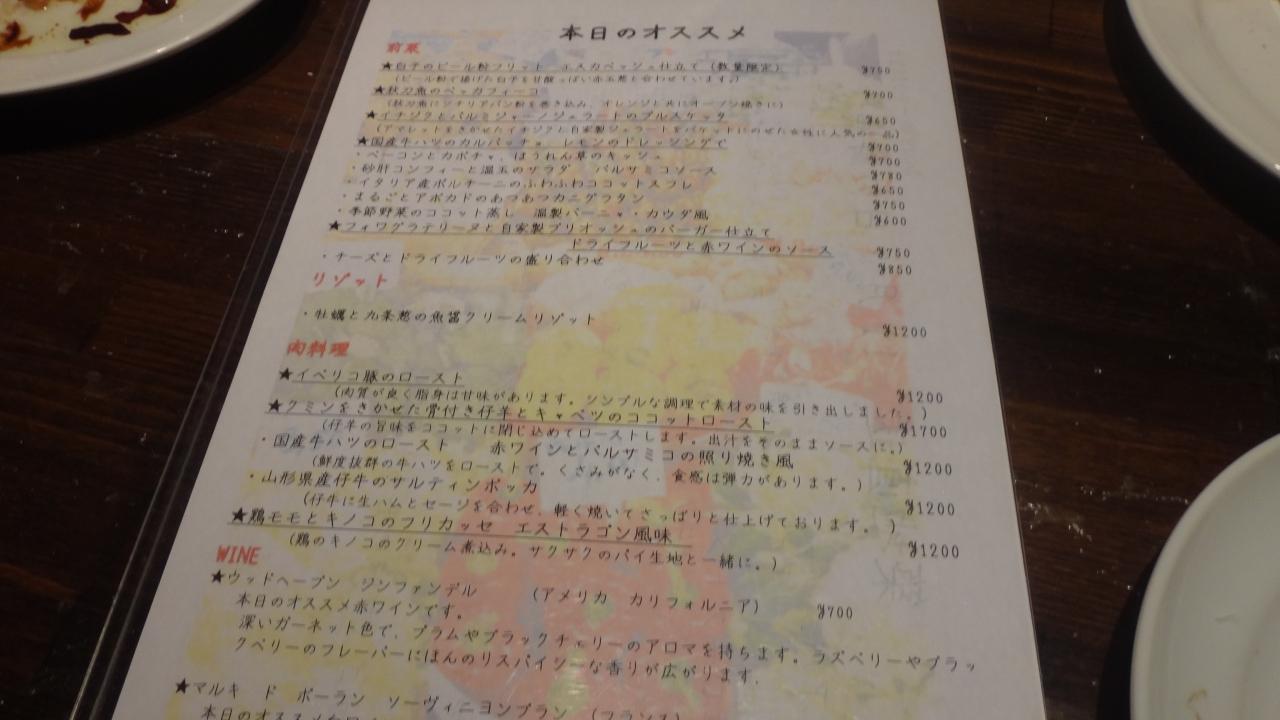 本日のオススメ
前菜
★白子のビール粉フリット エスカベッシュ仕立て (数量限定) ¥750
(ビール粉で揚げた白子を甘酸っぱい赤玉葱と合わせています。)
★秋刀魚のベッカフィーコ ¥700
(秋刀魚にシチリアパン粉を巻き込み、オレンジと共にオーブン焼きに)
★イチジクとパルミジャーノジェラートのブルスケッタ ¥650
(アマレットをきかせたイチジクと自家製ジェラートをバケットにのせた女性に人気の一品)
★国産牛ハツのカルパッチョ レモンのドレッシングで ¥700
・ベーコンとカボチャ、ほうれん草のキッシュ ¥700
・砂肝コンフィーと温玉のサラダ バルサミコソース ¥780
・イタリア産ポルチーニのふわふわココットスフレ ¥650
・まるごとアボカドのあつあつカニグラタン ¥750
・季節野菜のココット蒸し 温製バーニャ・カウダ風 ¥600
★フォワグラテリーヌと自家製ブリオッシュのバーガー仕立て
ドライフルーツと赤ワインのソース ¥750
・チーズとドライフルーツの盛り合わせ ¥850
リゾット
・牡蠣と九条葱の魚醤クリームリゾット ¥1200
肉料理
★イベリコ豚のロースト ¥1200
(肉質が良く脂身は甘味があります。シンプルな調理で素材の味を引き出しました。)
★クミンをきかせた骨付き仔羊とキャベツのココットロースト ¥1700
(仔羊の旨味をココットに閉じ込めてローストします。出汁をそのままソースに。)
・国産牛ハツのロースト 赤ワインとバルサミコの照り焼き風 ¥1200
(鮮度抜群の牛ハツをローストで。くさみがなく、食感は弾力があります。)
・山形県産仔牛のサルティンボッカ ¥1200
(仔牛に生ハムとセージを合わせ、軽く焼いてさっぱりと仕上げております。)
★鶏モモとキノコのフリカッセ エストラゴン風味 ¥1200
(鶏のキノコのクリーム煮込み。サクサクのパイ生地と一緒に。)
WINE
★ウッドヘーブン ジンファンデル (アメリカ カリフォルニア) ¥700
本日のオススメ赤ワインです。
深いガーネット色で、プラムやブラックチェリーのアロマを持ちます。ラズベリーやブラッ
クベリーのフレーバーにほんのりスパイシーな香りが広がります。
★マルキ ド ボーラン ソーヴィニヨンブラン (フランス)
本日のオススメ